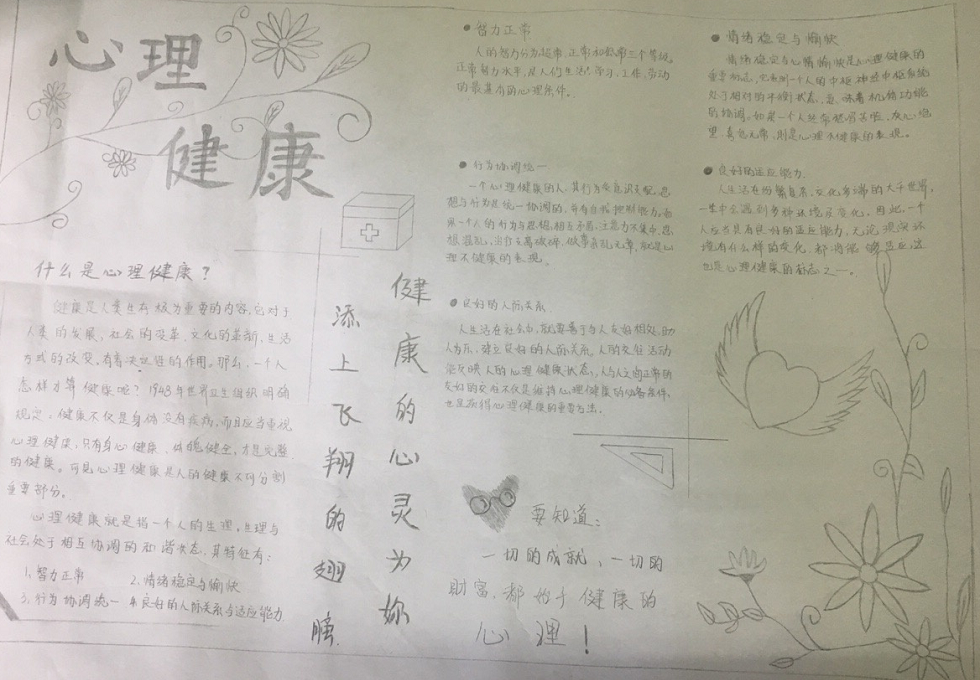 心理
健康
什么是心理健康？
健康是人类生存极为重要的内容，它对于
人类的发展、社会的变革、文化的革新、生活
方式的改变，有着决定性的作用。那么，一个人
怎样才算健康呢？1948年世界卫生组织明确
规定：健康不仅是身体没有疾病，而且应当重视
心理健康，只有身心健康、体魄健全，才是完整
的健康。可见心理健康是人的健康不可分割
重要部分。
心理健康就是指一个人的生理、生理与
社会处于相互协调的和谐状态，其特征有：
1、智力正常 2、情绪稳定与愉快
3、行为协调统一 4、良好的人际关系与适应能力
健康的心灵为妳
添上飞翔的翅膀
智力正常
人的智力分为超常、正常和低常三个等级。
正常智力水平，是人们生活、学习、工作、劳动
的最基本的心理条件。
行为协调统一
一个心理健康的人，其行为受意识支配，思
想与行为是统一协调的，并有自我控制能力。如
果一个人的行为与思想相互矛盾，注意力不集中，思
想混乱，语言支离破碎，做事杂乱无章，就是心
理不健康的表现。
良好的人际关系
人生活在社会中，就要善于与人友好相处，助
人为乐，建立良好的人际关系。人的交往活动
能反映人的心理健康状态，人与人之间正常的
友好的交往不仅是维持心理健康的必备条件，
也是获得心理健康的重要方法。
要知道：
一切的成就，一切的
财富，都始于健康的
心理！
情绪稳定与愉快
情绪稳定与心情愉快是心理健康的
重要标志，它表明一个人的中枢神经中枢系统
处于相对的平衡状态，意味着机体功能
的协调。如果一个人经常愁眉苦脸，灰心绝
望，喜怒无常，则是心理不健康的表现。
良好的适应能力
人生活在纷繁复杂、变化多端的大千世界，
一生中会遇到多种环境及变化。因此，一个
人应当具有良好的适应能力，无论现实环
境有什么样的变化，都将能够适应这
也是心理健康的标志之一。